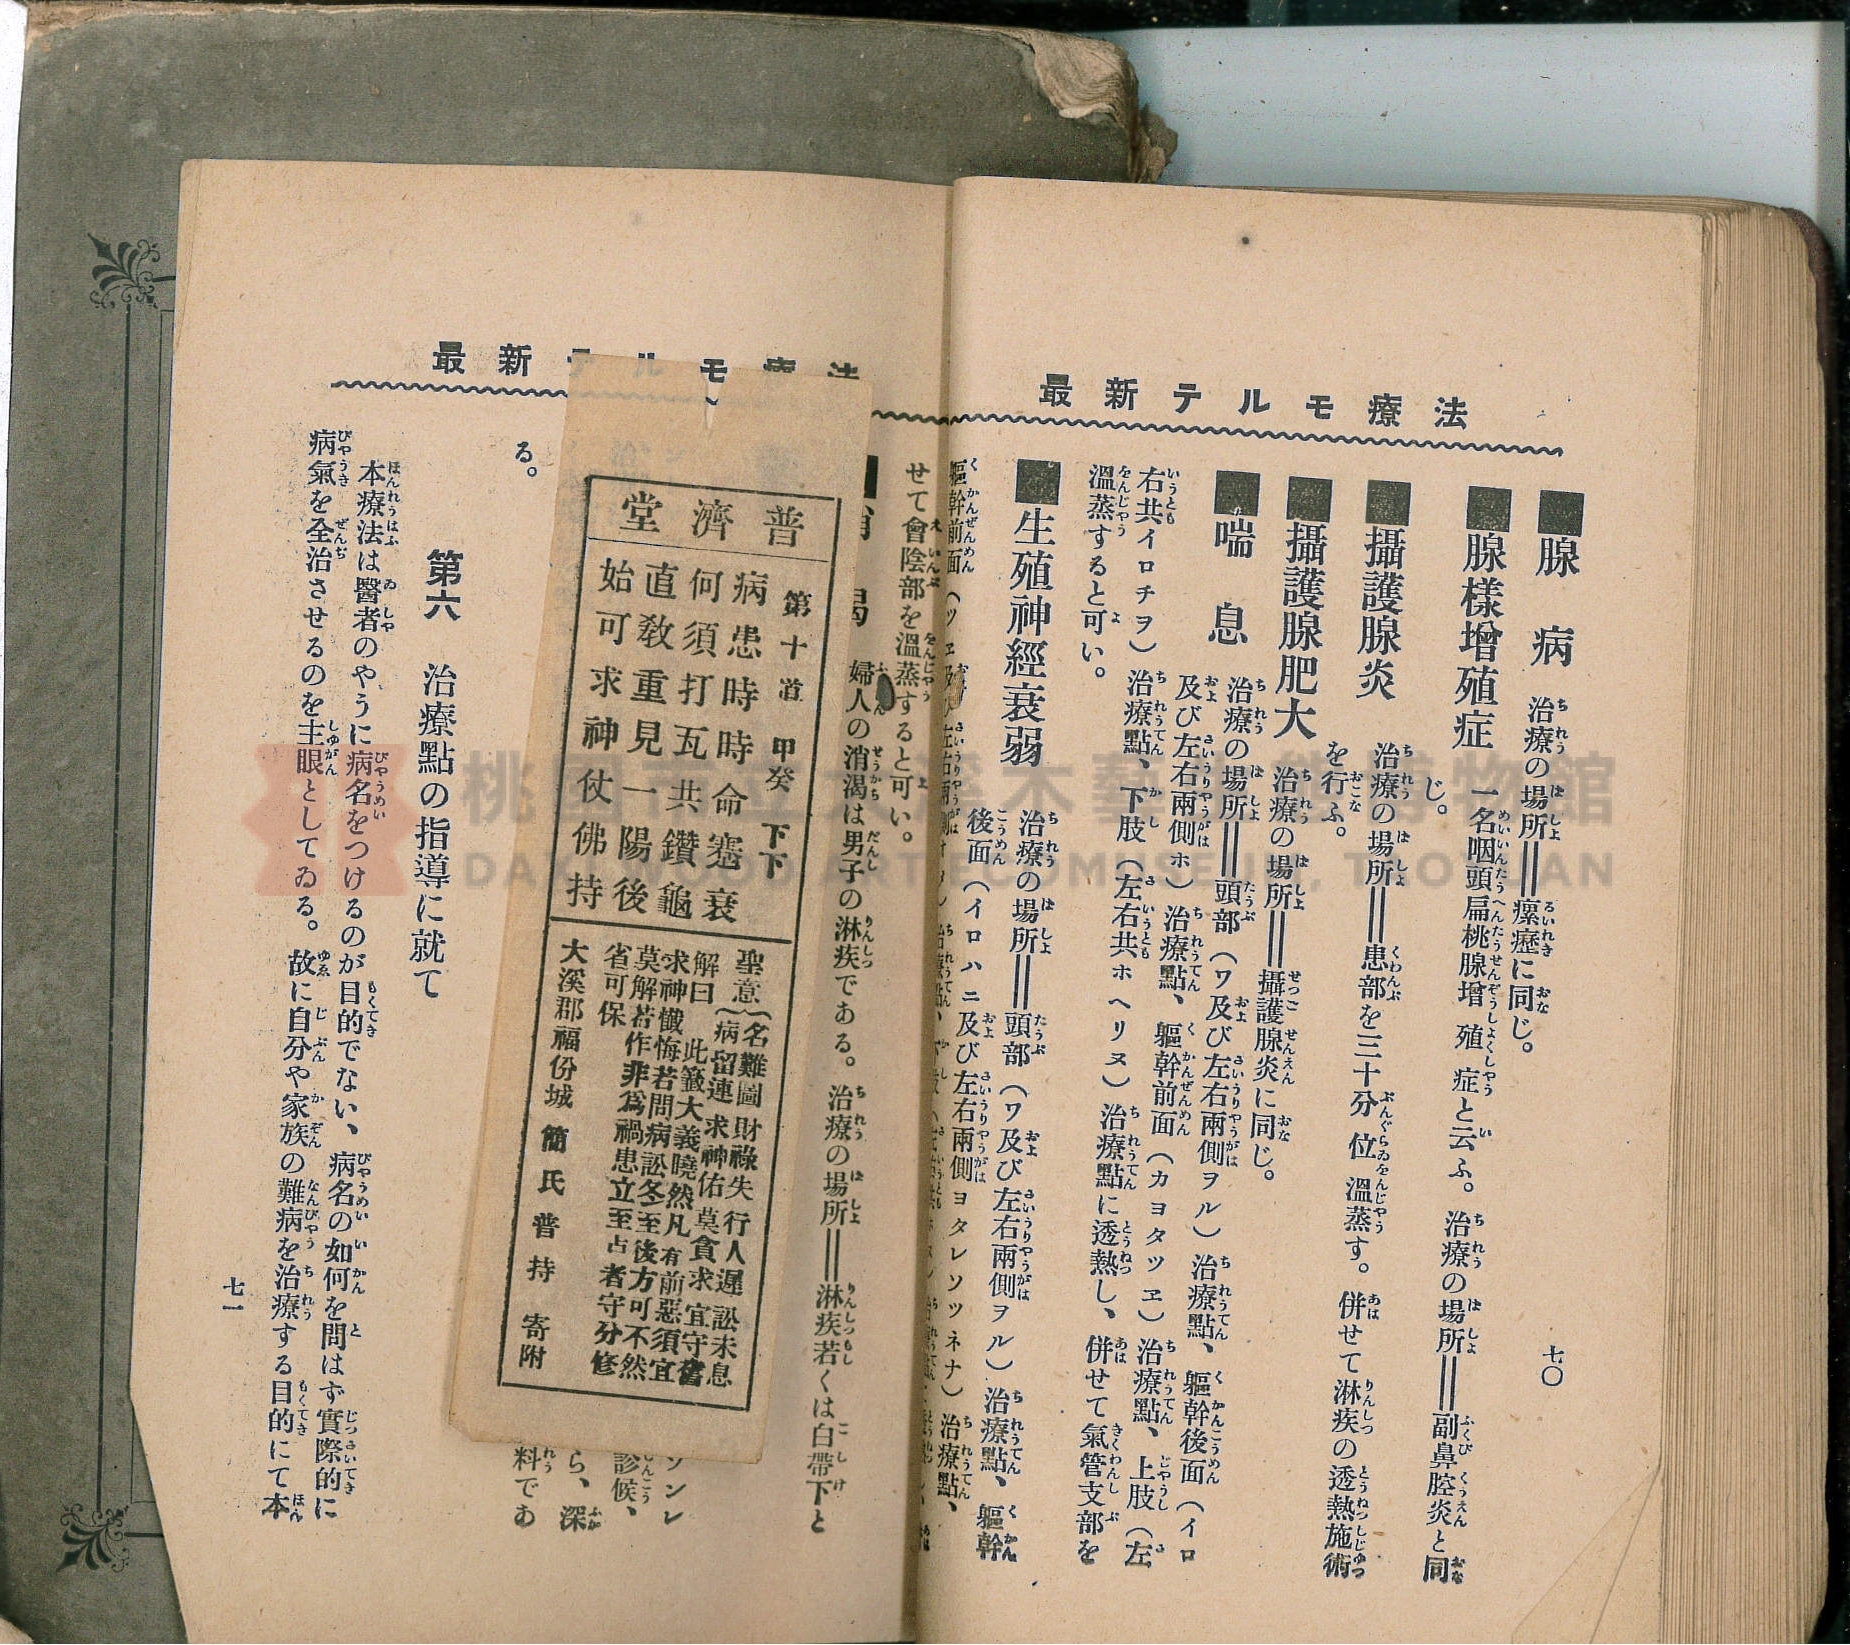 最新テルモ療法
七〇
■腺病　治療の場所＝瘰癧に同じ。
■腺樣增殖症　一名咽頭扁桃腺增殖症と云ふ。治療の場所＝副鼻腔炎と同
じ。
■攝護腺炎　治療の場所＝患部を三十分位溫蒸す。併せて淋疾の透熱施術
を行ふ。
■攝護腺肥大　治療の場所＝攝護腺炎に同じ。
■喘息　治療の場所＝頭部（ワ及び左右兩側ヲル）治療點、軀幹後面（イロ
及び左右兩側ホ）治療點、軀幹前面（カヨタツヱ）治療點、上肢（左
右共イロチヲ）治療點、下肢（左右共ホヘリヌ）治療點に透熱し、併せて氣管支部を
溫蒸すると可い。
■生殖神經衰弱　治療の場所＝頭部（ワ及び左右兩側ヲル）治療點、軀幹
後面（イロハニ及び左右兩側ヨタレソツネナ）治療點、
軀幹前面（ツヱ及び左右兩側
せて會陰部を溫蒸すると可い。
最新テルモ療法
婦人の消渴は男子の淋疾である。治療の場所＝淋疾若くは白帶下と
ソンレ
診候、
ら、深
料であ
る。
第六　治療點の指導に就て
本療法は醫者のやうに病名をつけるのが目的でない、病名の如何を問はず實際的に
病氣を全治させるのを主眼としてゐる。故に自分や家族の難病を治療する目的にて本
七一
普濟堂
第十首　甲癸　下下
病患時時命蹇衰
何須打瓦共鑽龜
直敎重見一陽後
始可求神仗佛持
聖意　名難圖　財祿失　行人遲　訟未息
病留連　求神佑　莫貪求　宜守舊
解曰　此籤大義曉然凡有前惡須宜
求神懺悔若問病訟冬至後方可不然
莫解若作非爲禍患立至占者守分修
省可保
大溪郡福份城　簡氏普持　寄附
桃園市立大溪木藝生態博物館
DAXI WOOD ART ECOMUSEUM, TAOYUAN